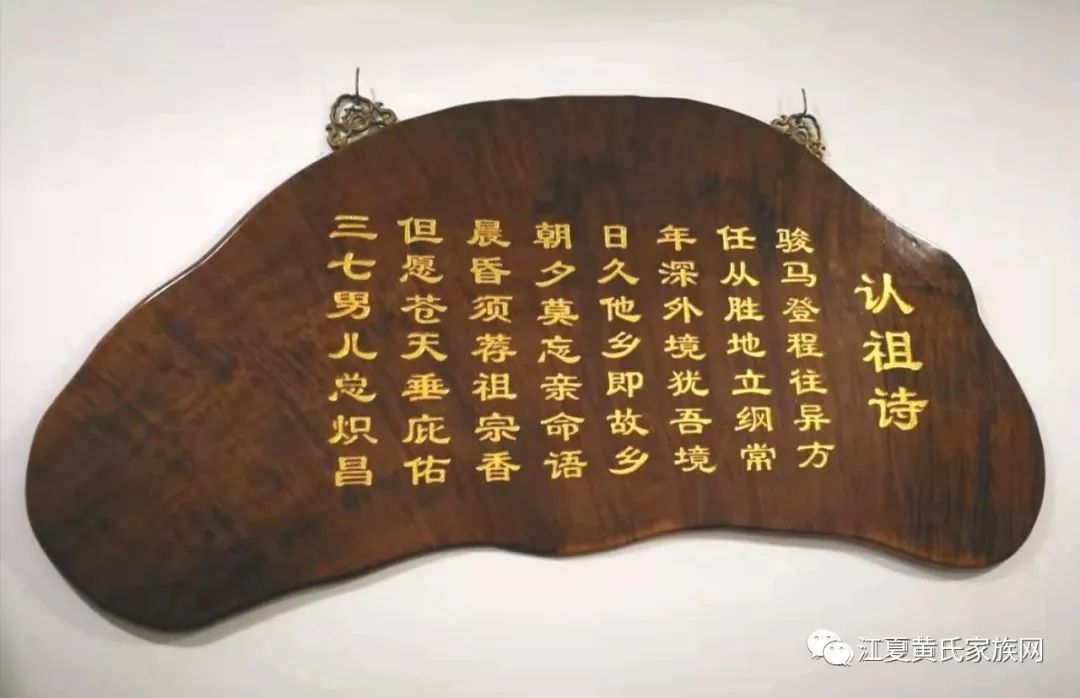 认祖诗
骏马登程往异方
任从胜地立纲常
年深外境犹吾境
日久他乡即故乡
朝夕莫忘亲命语
晨昏须荐祖宗香
但愿苍天垂庇佑
三七男儿总炽昌
江夏黄氏家族网